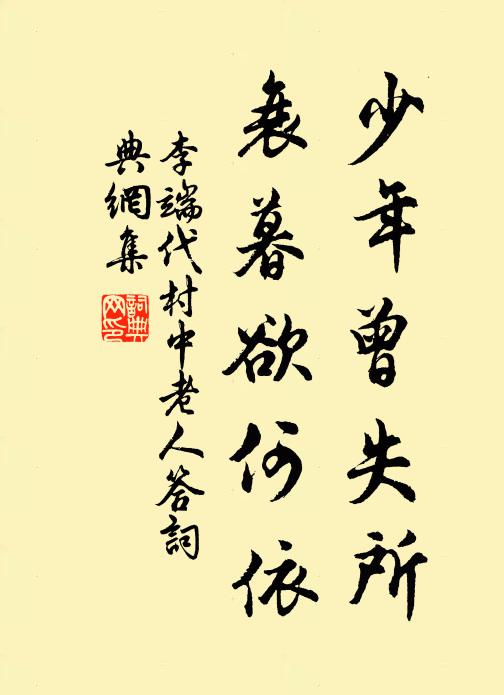 少年曾失所
衰暮欲何依
李端代村中老人答詞
典網集
詞典
网印